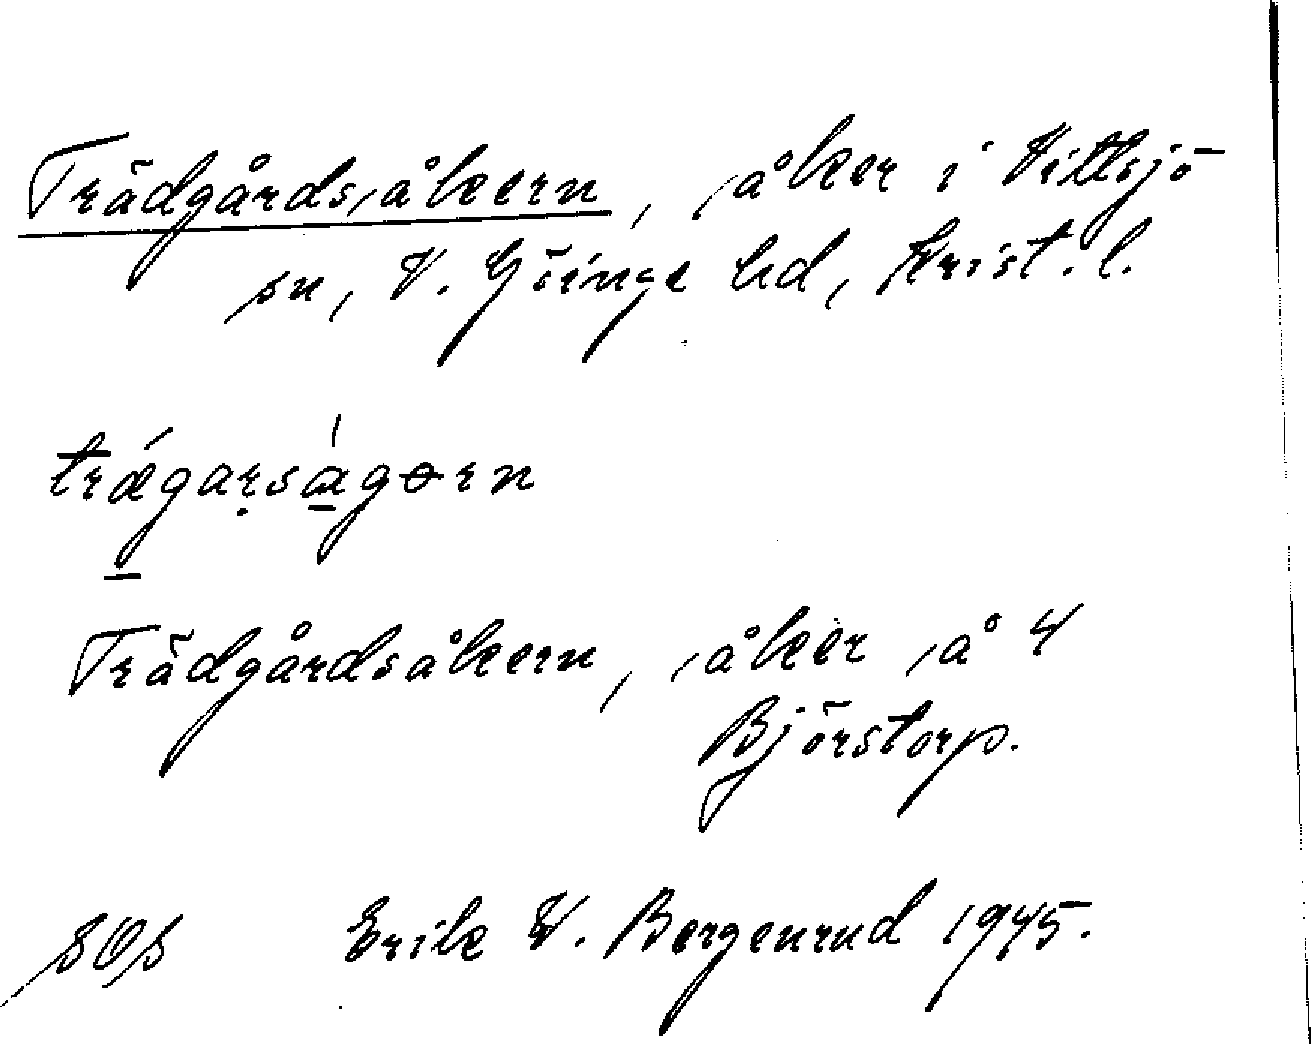 Trädgårdsåkern, åker i Vittsjö
sn, V. Göinge hd, Krist. l.
trǽgarṣág̵ɵrn
Trädgårdsåkern, åker å 4
Björstorp.
Erik W. Bergenrud 1945.